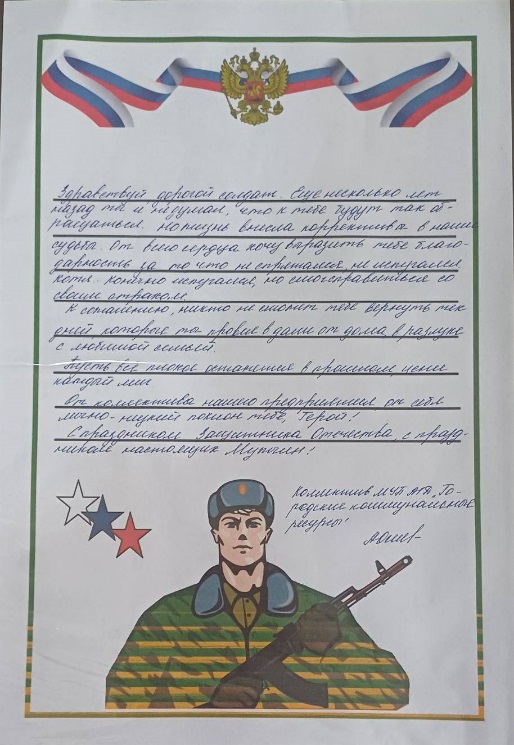 Здравствуй дорогой солдат. Еще несколько лет
назад ты и не думал, что к тебе будут так об-
ращаться. Но жизнь внесла коррективы в наши
судьбы. От всего сердца хочу выразить тебе благо-
дарность за то что не спрятался, не испугался,
хотя конечно испугался, но смог справиться со
своим страхом.
К сожалению, никто не сможет тебе вернуть тех
дней которые ты провел в дали от дома, в разлуке
с любимой семьей.
Пусть все плохое останется в прошлом, цени
каждый миг
От коллектива нашего предприятия от себя
лично - низкий поклон тебе, Герой!
С праздником Защитника Отечества, с празд-
ником настоящих Мужчин!
Коллектив МУП "Го-
родские коммунальные
ресурсы"